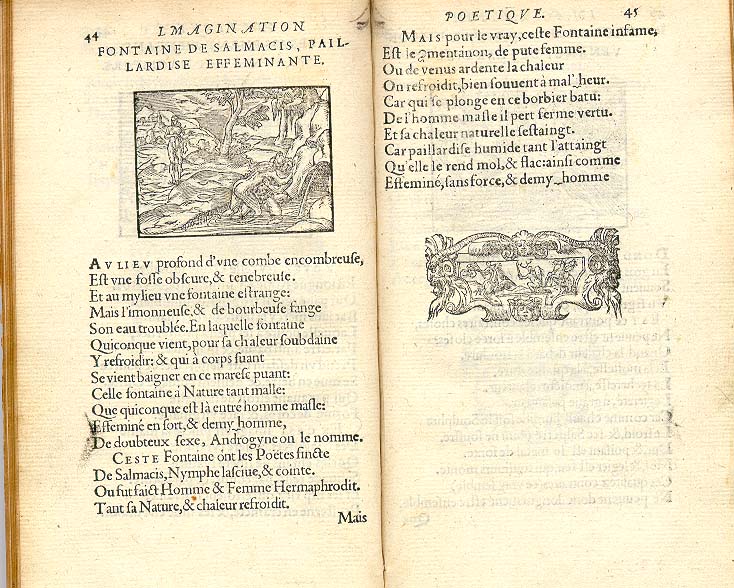 44
IMAGINATION
FONTAINE DE SALMACIS, PAIL-
LARDISE EFFEMINANTE.
AVLIEV profond d'vne combe encombreuse,
Est vne fosse obscure, & tenebreuse.
Et au mylieu vne fontaine estrange:
Mais limonneuse, & de bourbeuse fange
Son eau troublée. En laquelle fontaine
Quiconque vient, pour sa chaleur soubdaine
Y refroidir: & qui à corps suant
Se vient baigner en ce maresc puant:
Celle fontaine à Nature tant malle:
Que quiconque est là entré homme masle:
Effeminé en sort, & demy_homme,
De doubteux sexe, Androgyne on le nomme.
CESTE Fontaine ont les Poëtes fincte
De Salmacis, Nymphe lasciue, & cointe.
Ou fut faict Homme & Femme Hermaphrodit.
Tant sa Nature, & chaleur refroidit.
Mais
POETIQVE.
45
MAIS pour le vray, ceste Fontaine infame,
Est le mentanon, de pute femme.
Ou de venus ardente la chaleur
On refroidit, bien souuent à mal_heur.
Car qui se plonge en ce borbier batu:
De l'homme masle il pert ferme vertu.
Et sa chaleur naturelle sestaingt.
Car paillardise humide tant l'attaingt
Qu'elle le rend mol, & flac: ainsi comme
Effeminé, sans force, & demy_homme